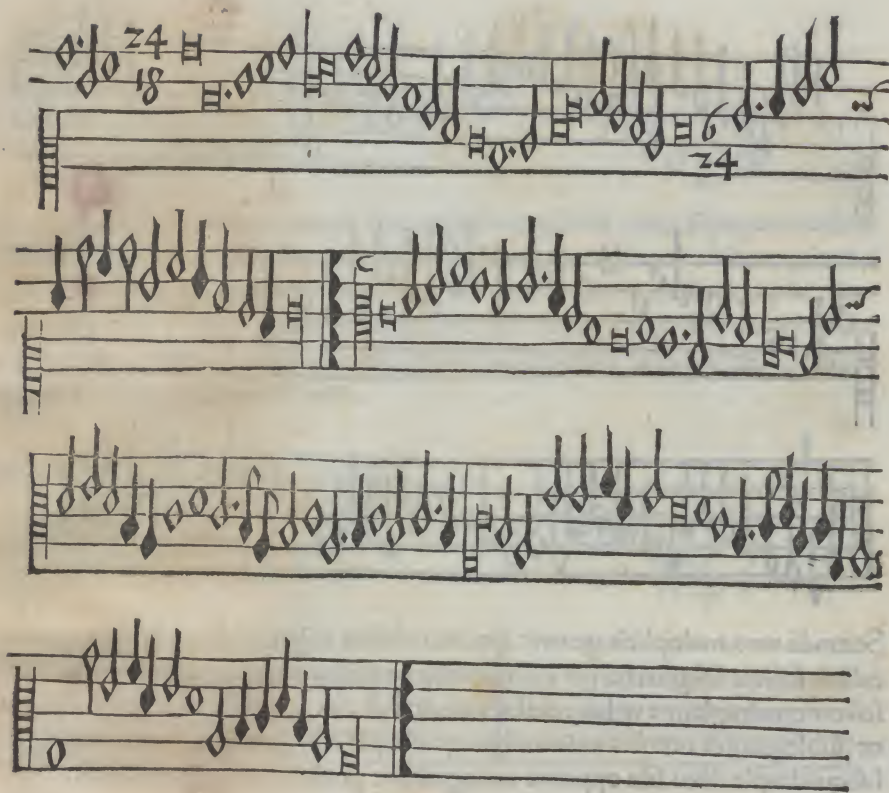 24
18
6
24
C